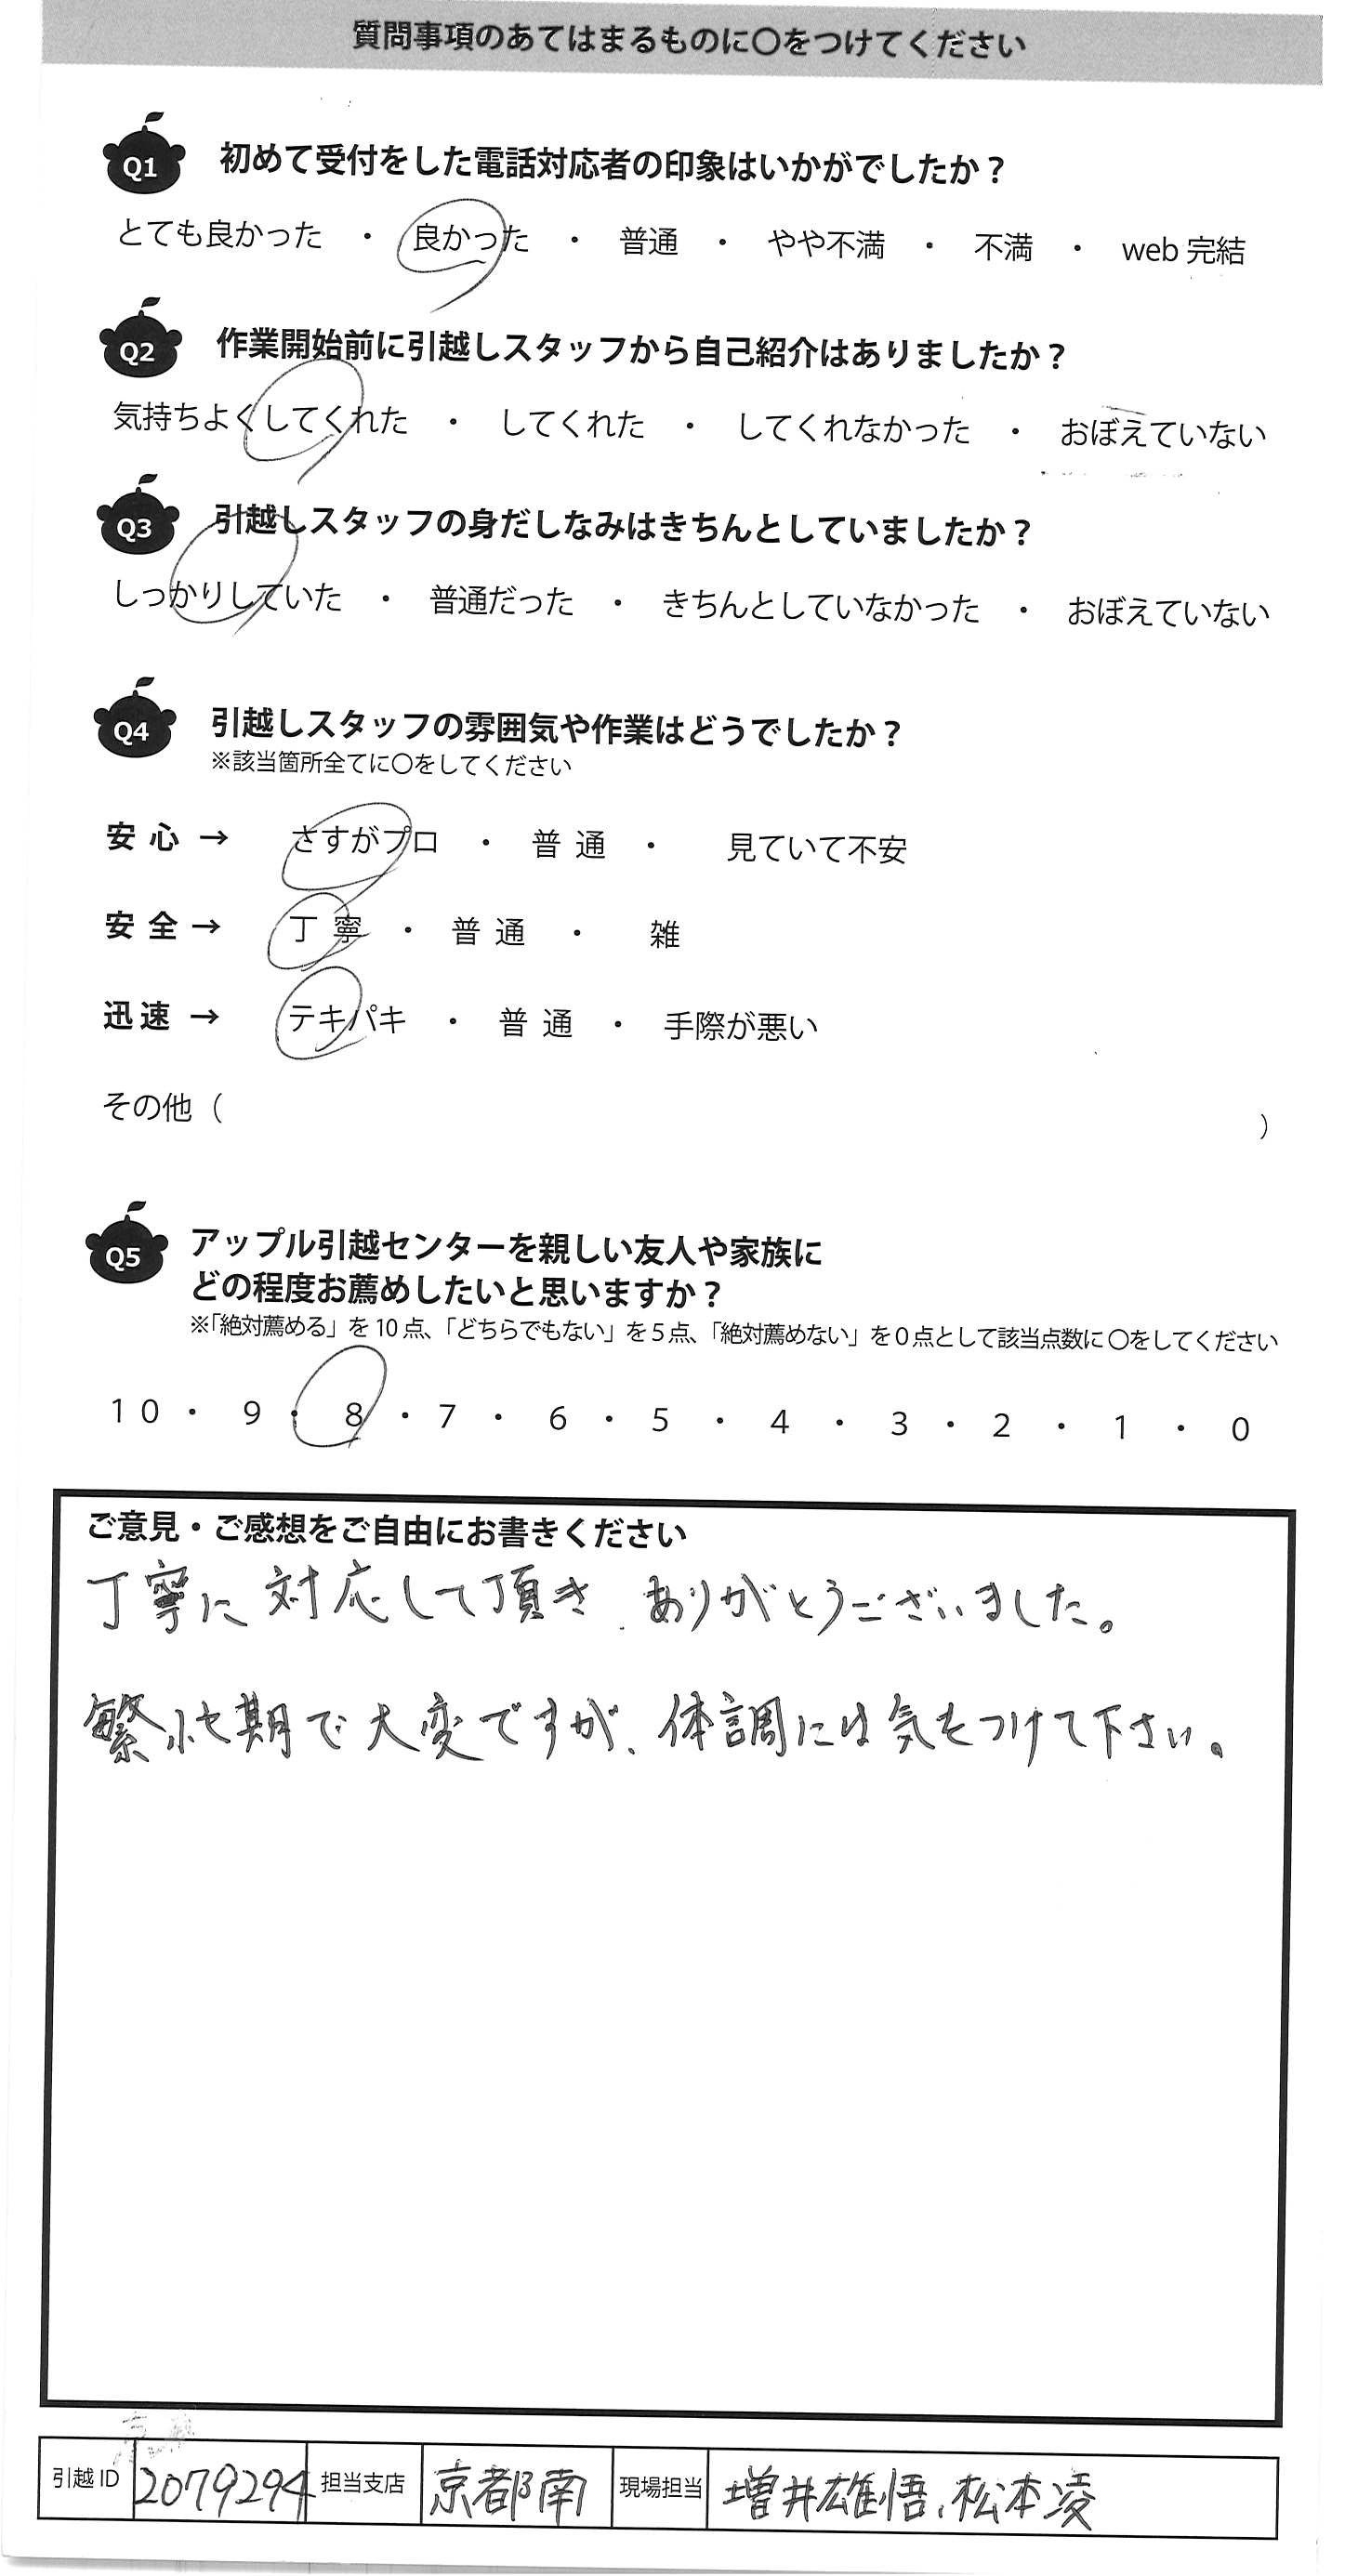 質問事項のあてはまるものに〇をつけてください
Q1 初めて受付をした電話対応者の印象はいかがでしたか？
とても良かった ・ 良かった ・ 普通 ・ やや不満 ・ 不満 ・ web 完結
Q2 作業開始前に引越しスタッフから自己紹介はありましたか？
気持ちよくしてくれた ・ してくれた ・ してくれなかった ・ おぼえていない
Q3 引越しスタッフの身だしなみはきちんとしていましたか？
しっかりしていた ・ 普通だった ・ きちんとしていなかった ・ おぼえていない
Q4 引越しスタッフの雰囲気や作業はどうでしたか？
※該当箇所全てに〇をしてください
安 心 → さすがプロ ・ 普 通 ・ 見ていて不安
安 全 → 丁 寧 ・ 普 通 ・ 雑
迅 速 → テキパキ ・ 普 通 ・ 手際が悪い
その他（ ）
Q5 アップル引越センターを親しい友人や家族に
どの程度お薦めしたいと思いますか？
※「絶対薦める」を 10 点、「どちらでもない」を 5 点、「絶対薦めない」を 0 点として該当点数に 〇をしてください
10 ・ 9 ・ 8 ・ 7 ・ 6 ・ 5 ・ 4 ・ 3 ・ 2 ・ 1 ・ 0
ご意見・ご感想をご自由にお書きください
丁寧に対応して頂き、ありがとうございました。
繁忙期で大変ですが、体調には気をつけて下さい。
引越 ID 2079294 担当支店 京都南 現場担当 増井雄悟、松本凌